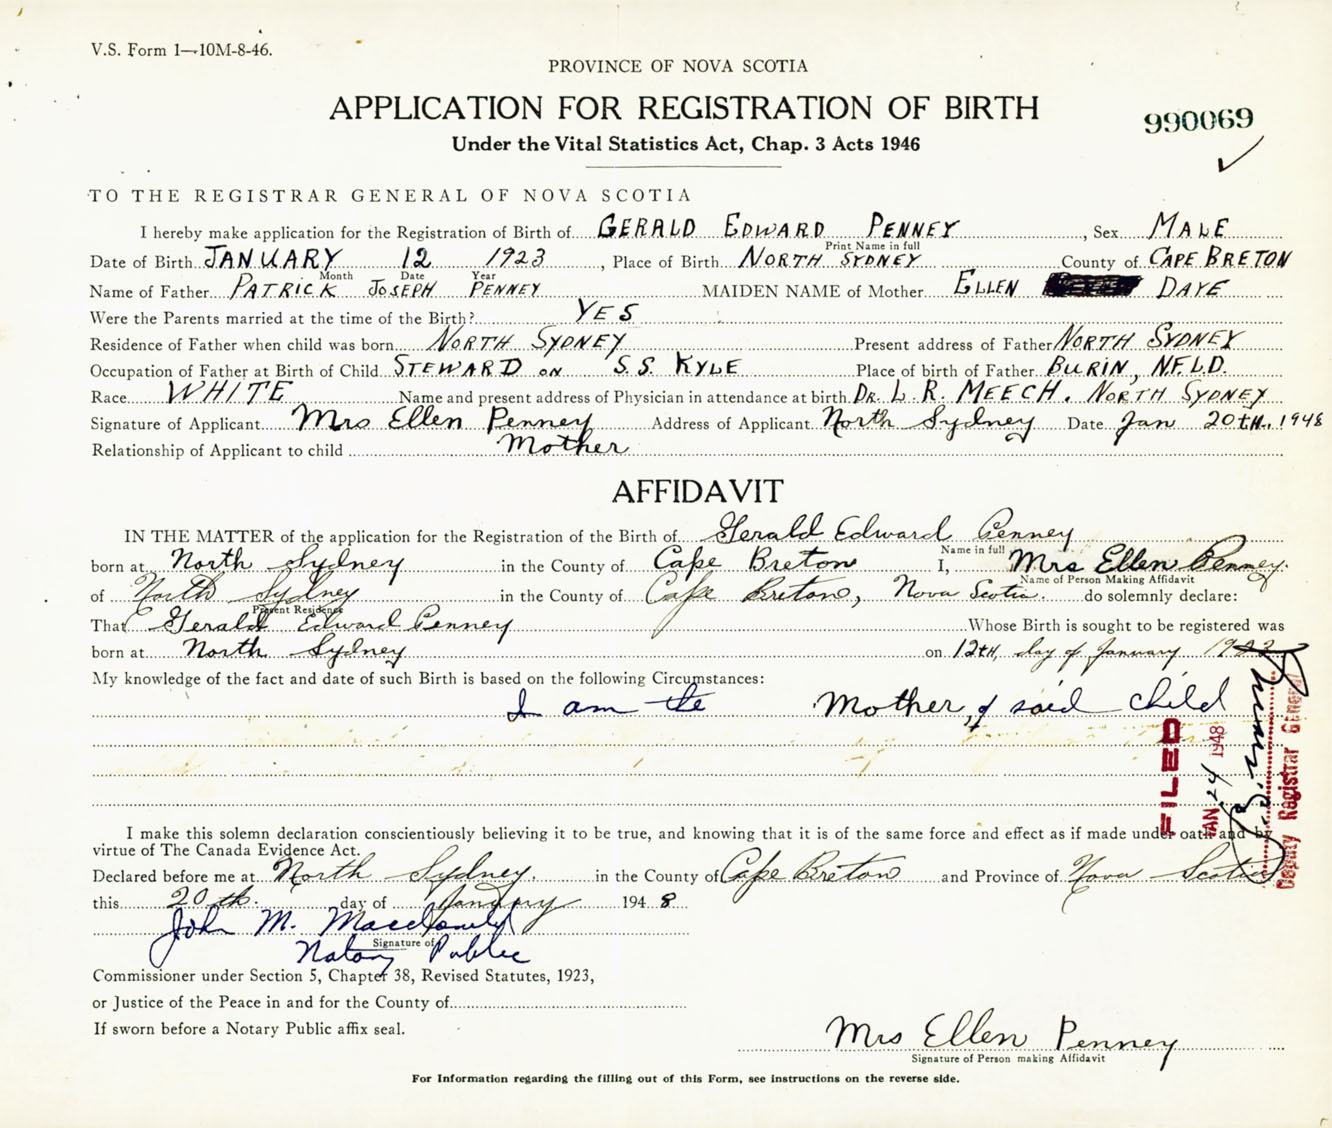 V.S. Form 1—10M-8-46.
PROVINCE OF NOVA SCOTIA
APPLICATION FOR REGISTRATION OF BIRTH
990069
Under the Vital Statistics Act, Chap. 3 Acts 1946
TO THE REGISTRAR GENERAL OF NOVA SCOTIA
I hereby make application for the Registration of Birth of GERALD EDWARD PENNEY, Sex MALE
Print Name in full
Date of Birth JANUARY 12 1923, Place of Birth NORTH SYDNEY County of CAPE BRETON
Month Date Year
Name of Father PATRICK JOSEPH PENNEY MAIDEN NAME of Mother ELLEN DAYE
Were the Parents married at the time of the Birth? YES
Residence of Father when child was born NORTH SYDNEY Present address of Father NORTH SYDNEY
Occupation of Father at Birth of Child STEWARD ON S.S. KYLE Place of birth of Father BURIN, N.F.L.D.
Race WHITE Name and present address of Physician in attendance at birth DR. L. R. MEECH. NORTH SYDNEY
Signature of Applicant Mrs Ellen Penney Address of Applicant North Sydney Date Jan 20th, 1948
Relationship of Applicant to child Mother
AFFIDAVIT
IN THE MATTER of the application for the Registration of the Birth of Gerald Edward Penney
Name in full
born at North Sydney in the County of Cape Breton I, Mrs Ellen Penney.
Name of Person Making Affidavit
of North Sydney in the County of Cape Breton, Nova Scotia. do solemnly declare:
Present Residence
That Gerald Edward Penney Whose Birth is sought to be registered was
born at North Sydney on 12th day of January 1923
My knowledge of the fact and date of such Birth is based on the following Circumstances:
I am the Mother, of said child
FILED
JAN 24 1948
Deputy Registrar General
I make this solemn declaration conscientiously believing it to be true, and knowing that it is of the same force and effect as if made under oath and by
virtue of The Canada Evidence Act.
Declared before me at North Sydney. in the County of Cape Breton and Province of Nova Scotia
this 20th. day of January 1948
John M. Macdonald
Signature of
Notary Public
Commissioner under Section 5, Chapter 38, Revised Statutes, 1923,
or Justice of the Peace in and for the County of
If sworn before a Notary Public affix seal.
Mrs Ellen Penney
Signature of Person making Affidavit
For Information regarding the filling out of this Form, see instructions on the reverse side.